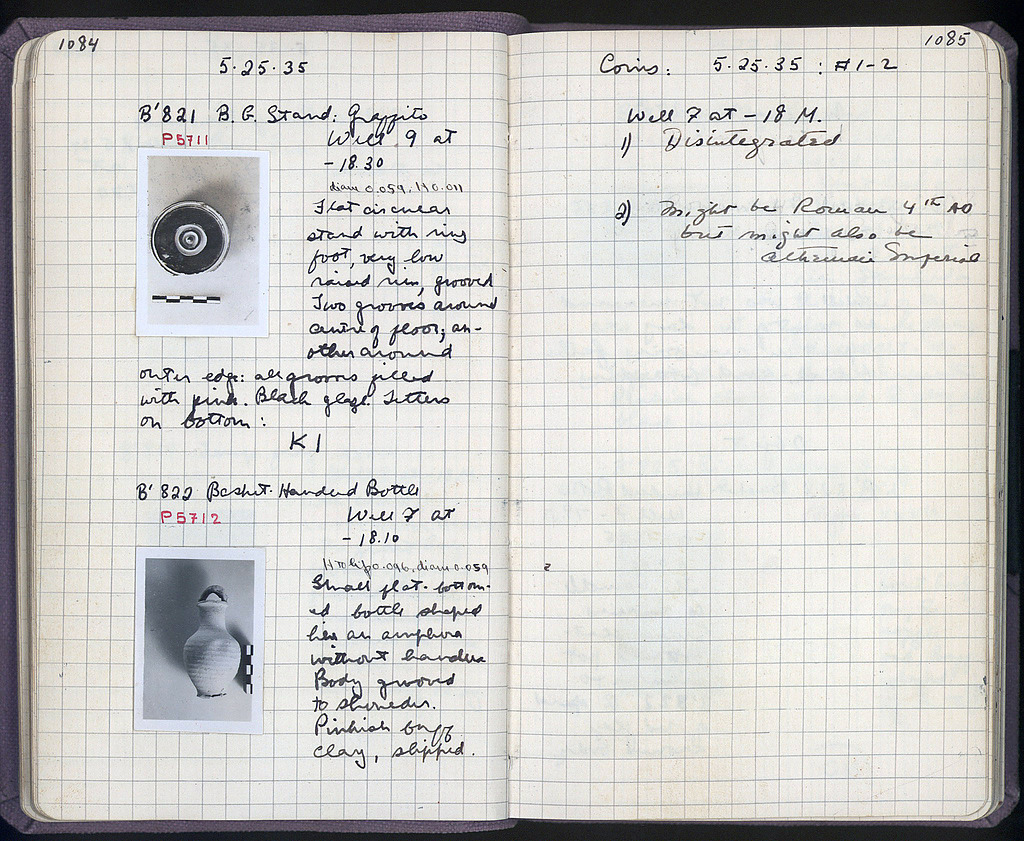 1084
5·25·35
B'821 B.G. Stand: Graffito
P5711
Well 9 at
-18.30
diam 0.059, H 0.011
Flat circular
stand with ring
foot, very low
raised rim, grooved
Two grooves around
centre of floor; an-
other around
outer edge: all grooves filled
with pink. Black glaze. Letters
on bottom:
K I
B'822 Basket-Handled Bottle
P5712
Well 7 at
-18.10
H to lip 0.096, diam 0.059
Small flat-bottom-
ed bottle shaped
like an amphora
without handles
Body grooved
to shoulder.
Pinkish buff
clay, slipped.
1085
Coins: 5·25·35 : #1-2
Well 7 at -18 M.
1) Disintegrated
2) Might be Roman 4th AD
but might also be
Athenian Imperial